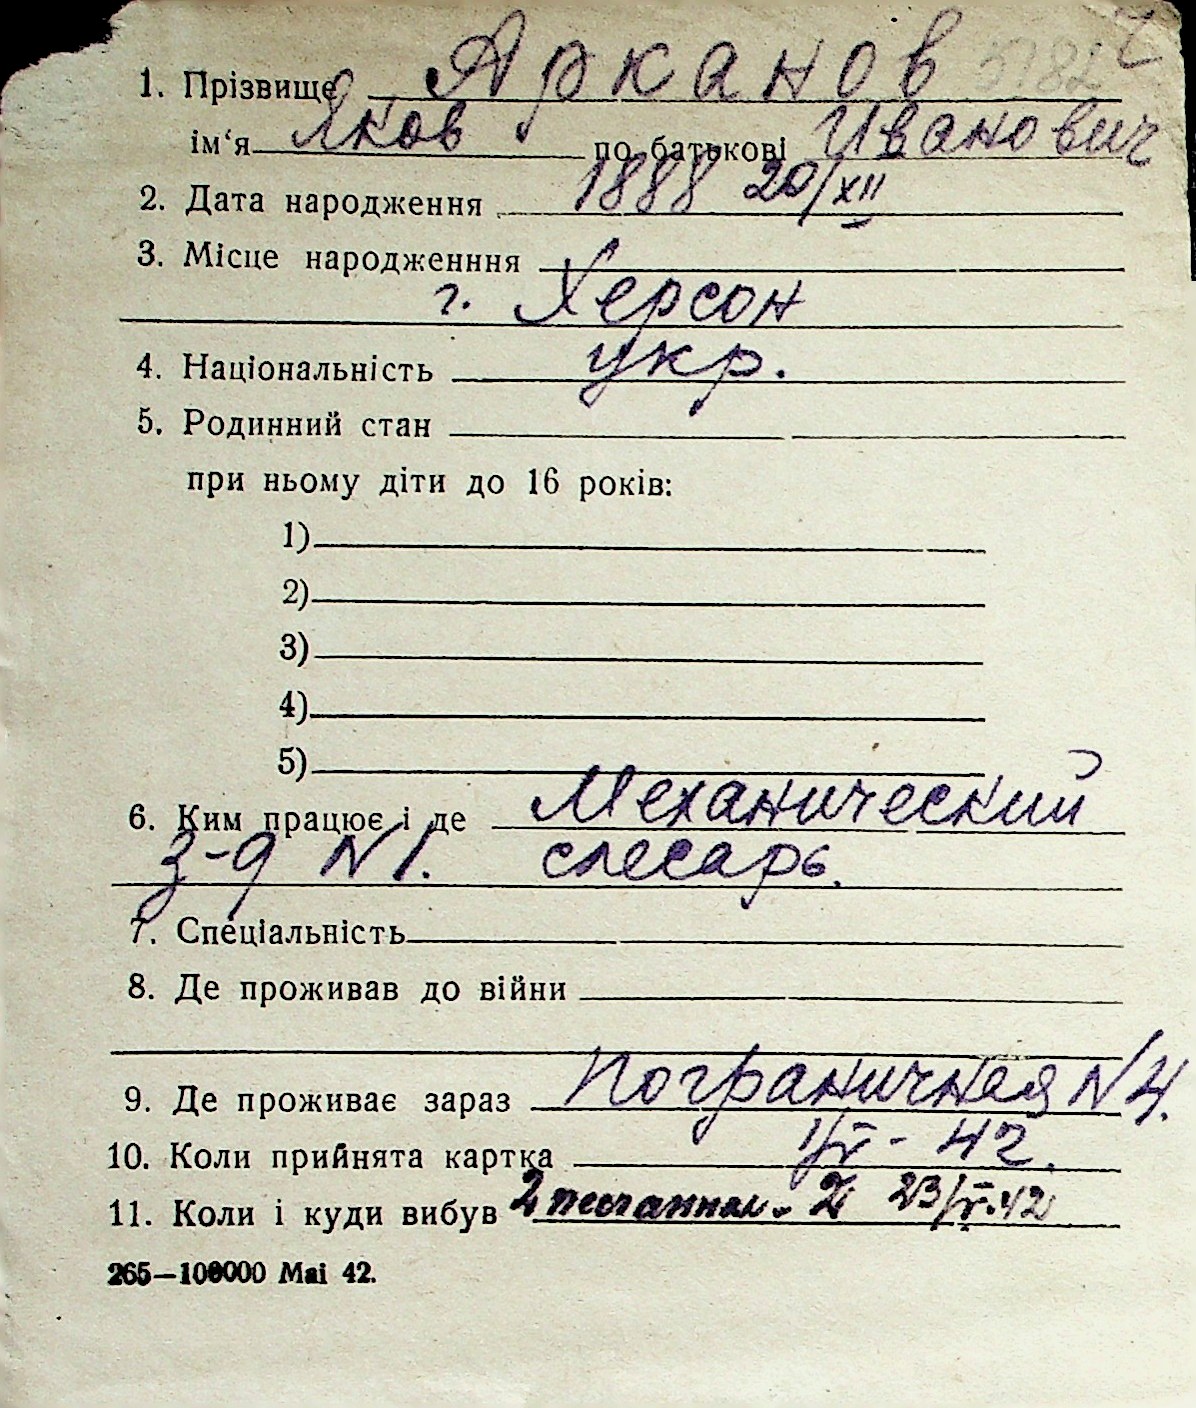 1. Прізвище Арканов
ім‘я Яков по батькові Иванович
2. Дата народження 1888 20/XII
3. Місце народженння
г. Херсон
4. Національність укр.
5. Родинний стан
при ньому діти до 16 років:
1)
2)
3)
4)
5)
6. Ким працює і де Механический
з-д №1. слесарь.
7. Спеціальність
8. Де проживав до війни
9. Де проживає зараз Пограничная №4.
10. Коли прийнята картка 1/V - 42.
11. Коли і куди вибув 23/V.42
265—100000 Mai 42.